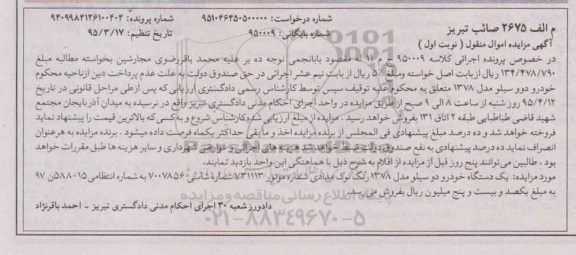 م الف ۲۶۷۵ صائب تبریز
شماره درخواست: ۹۵۱۰۴۶۳۵۰۵۰۰۰۰۰
شماره پرونده: ۹۴۰۹۹۸۴۱۳۶۱۰۰۴۰۴
شماره بایگانی: ۹۵۰۰۰۹
تاریخ تنظیم: ۹۵/۳/۱۷
آگهی مزایده اموال منقول ( نوبت اول )
در خصوص پرونده اجرائی کلاسه ۹۵۰۰۰۹ م ۹۱ له مقصود باباتجمی توجه ده بر علیه محمد باقررضوی مجارشین بخواسته مطالبه مبلغ
۱۳۴/۴۷۸/۷۹۰ ریال از بابت اصل خواسته ومبلغ ریال از بابت نیم عشر اجرائی در حق صندوق دولت به علت عدم پرداخت دین ازناحیه محکوم
خودرو دوو سیلو مدل ۱۳۷۸ متعلق به محکوم علیه توقیف سپس توسط کارشناس رسمی دادگستری ارزیابی که پس ازطی مراحل قانونی در تاریخ
۹۵/۴/۱۲ روز شنبه از ساعت ۸ الی ۹ صبح از طریق مزایده در واحد اجرای احکام مدنی دادگستری تبریز واقع در نرسیده به میدان آذربایجان مجتمع
شهید قاضی طباطبایی طبقه ۲ اتاق ۱۳۱ بفروش خواهد رسید . مزایده از مبلغ ارزیابی شده کارشناس شروع و به کسی که بالاترین قیمت را پیشنهاد نماید
فروخته خواهد شد و ده درصد مبلغ پیشنهادی فی المجلس از برنده مزایده اخذ و ما بقی حداکثر یکماه فرصت داده میشود . برنده مزایده به هرعنوان
انصراف نماید ده درصد پیشنهادی به نفع صندوق دولت ضبط خواهد شد هزینه های اجرایی و عوارض شهرداری و سایر هزینه ها طبق مقررات خواهد
بود . طالبین می‌توانند پنج روز قبل از مزایده از اقلام به شرح ذیل با هماهنگی این واحد بازدید نمایند.
مورد مزایده: یک دستگاه خودرو دو سیلو مدل ۱۳۷۸ رنگ نوک مدادی شماره موتور ۷۳۱۱۱۳ شماره شاسی ۷۰۰۷۸۵۶ به شماره انتظامی ۱۵-۵۸۸ن ۹۷
به مبلغ یکصد و بیست و پنج میلیون ریال بفروش می رسد.
دادورز شعبه ۳۰ اجرای احکام مدنی دادگستری تبریز - احمد باقرنژاد
پایگاه اطلاع رسانی مناقصه و مزایده
۰۲۱-۸۸۳۴۹۶۷۰-۵